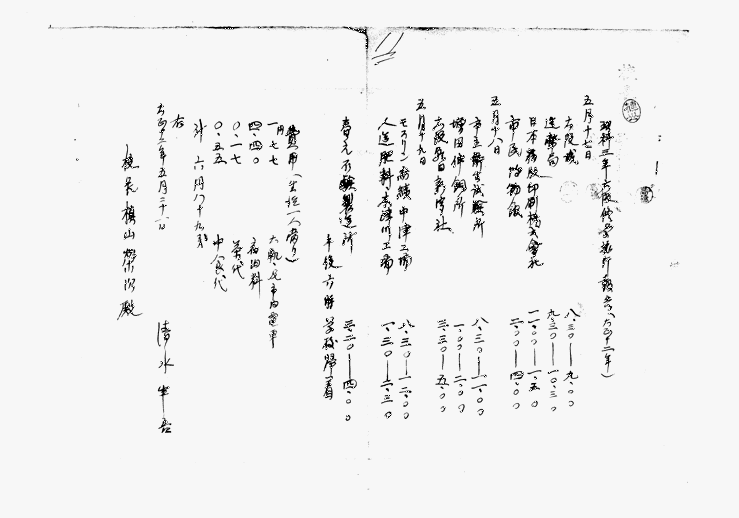 理科三年大阪修学旅行報告(大正十二年)
五月十七日
大阪城 八.三〇—九.〇〇
造幣局 九.三〇—一〇.三〇
日本精版印刷株式會社 一一.〇〇—一.五〇
市民博物館 二.〇〇—四.〇〇
五月十八日
市立衛生試験所 八.三〇—一一.〇〇
増田伸銅所 一.〇〇—二.〇〇
大阪朝日新聞社 三.三〇—五.〇〇
五月十九日
モスリン紡績中津工場 八.三〇—一二.〇〇
人造肥料木津川工場 一.三〇—二.三〇
春元石鹸製造所 三.三〇—四.〇〇
午後六時学校歸着
費用(生徒一人當り)
一円七七 大軌及市内電車
四.四〇 宿泊料
〇.一七 茶代
〇.五五 中食代
計 六円八十九銭
右
大正十二年五月二十一日
校長 槙山榮次殿